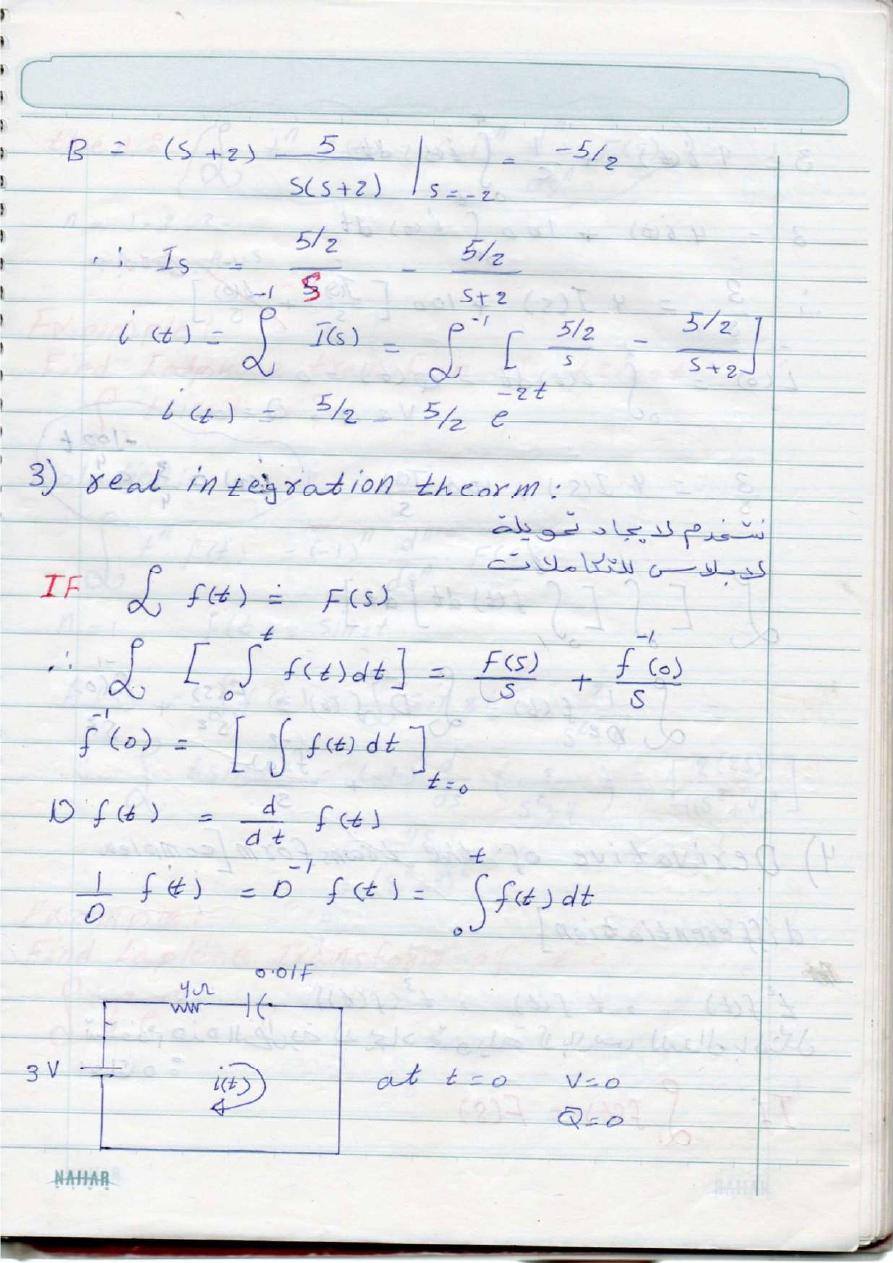 B = (s+2) 5 / s(s+2) | s=-2 = -5/2
∴ Is = 5/2 / s - 5/2 / s+2
i(t) = ℒ⁻¹ I(s) = ℒ⁻¹ [ 5/2 / s - 5/2 / s+2 ]
i(t) = 5/2 - 5/2 e^-2t
3) real integration theorm:
نستخدم لايجاد تحويلة
لابلاس للتكاملات
IF ℒ f(t) = F(s)
∴ ℒ [ ∫₀ᵗ f(t) dt ] = F(s)/s + f⁻¹(0)/s
f⁻¹(0) = [ ∫ f(t) dt ] t=0
D f(t) = d/dt f(t)
1/D f(t) = D⁻¹ f(t) = ∫₀ᵗ f(t) dt
4Ω 0.01F
3V i(t) at t=0 V=0
Q=0
NAJJAR